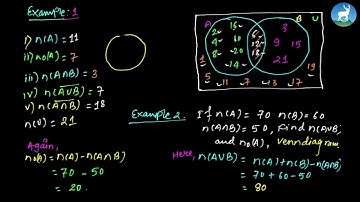 Example:1
i) n(A) = 11
ii) n₀(A) = 7
iii) n(A∩B) = 3
iv) n(A̅∪̅B̅) = 7
v) n(A̅∩̅B̅) = 18
n(U) = 21
A B U
2 16
4 10
8 20
14
6
12
18
3
9 15
21
1 19
5 11 7 13 17
Example 2.
If n(A) = 70 n(B) = 60
n(A∩B) = 50, find n(A∪B)
and n₀(A), venn diagram.
Again,
n₀(A) = n(A) - n(A∩B)
= 70 - 50
= 20.
Here, n(A∪B) = n(A)+n(B)-n(A∩B)
= 70 + 60 - 50
= 80